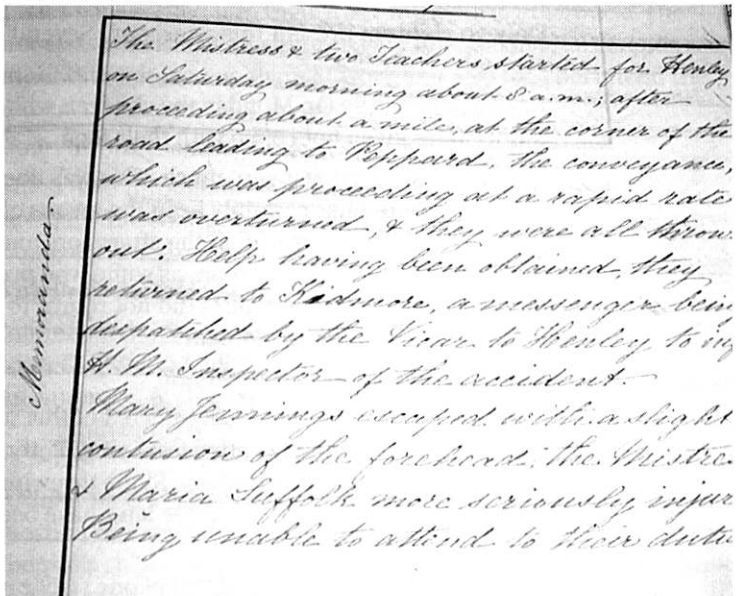 Memoranda
The Mistress & two Teachers started for Henley
on Saturday morning about 8 a.m.; after
proceeding about a mile, at the corner of the
road leading to Peppard, the conveyance,
which was proceeding at a rapid rate
was overturned, & they were all throw
out. Help having been obtained, they
returned to Kidmore, a messenger bein
despatched by the Vicar to Henley to in
H. M. Inspector of the accident.
Mary Jennings escaped with a slight
contusion of the forehead; the Mistre
& Maria Suffolk more seriously injur
Being unable to attend to their dutie